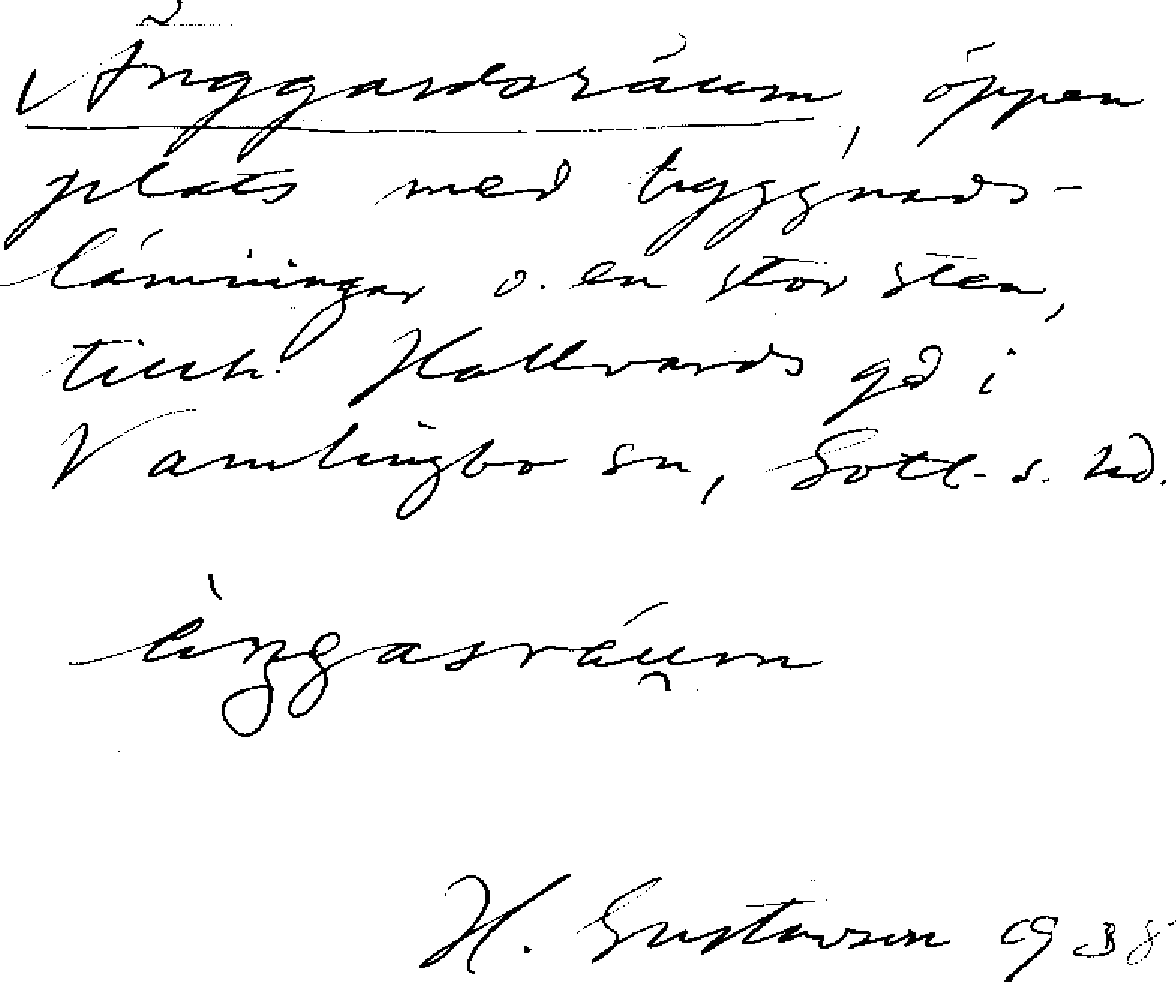 Änggardsräum, öppen
plats med byggnads-
lämningar o. en stor sten,
tillh. Hallvards gd i
Vamlingbo sn, Gotl. s. hd.
ängasräu̯m
H. Gustavson 1938